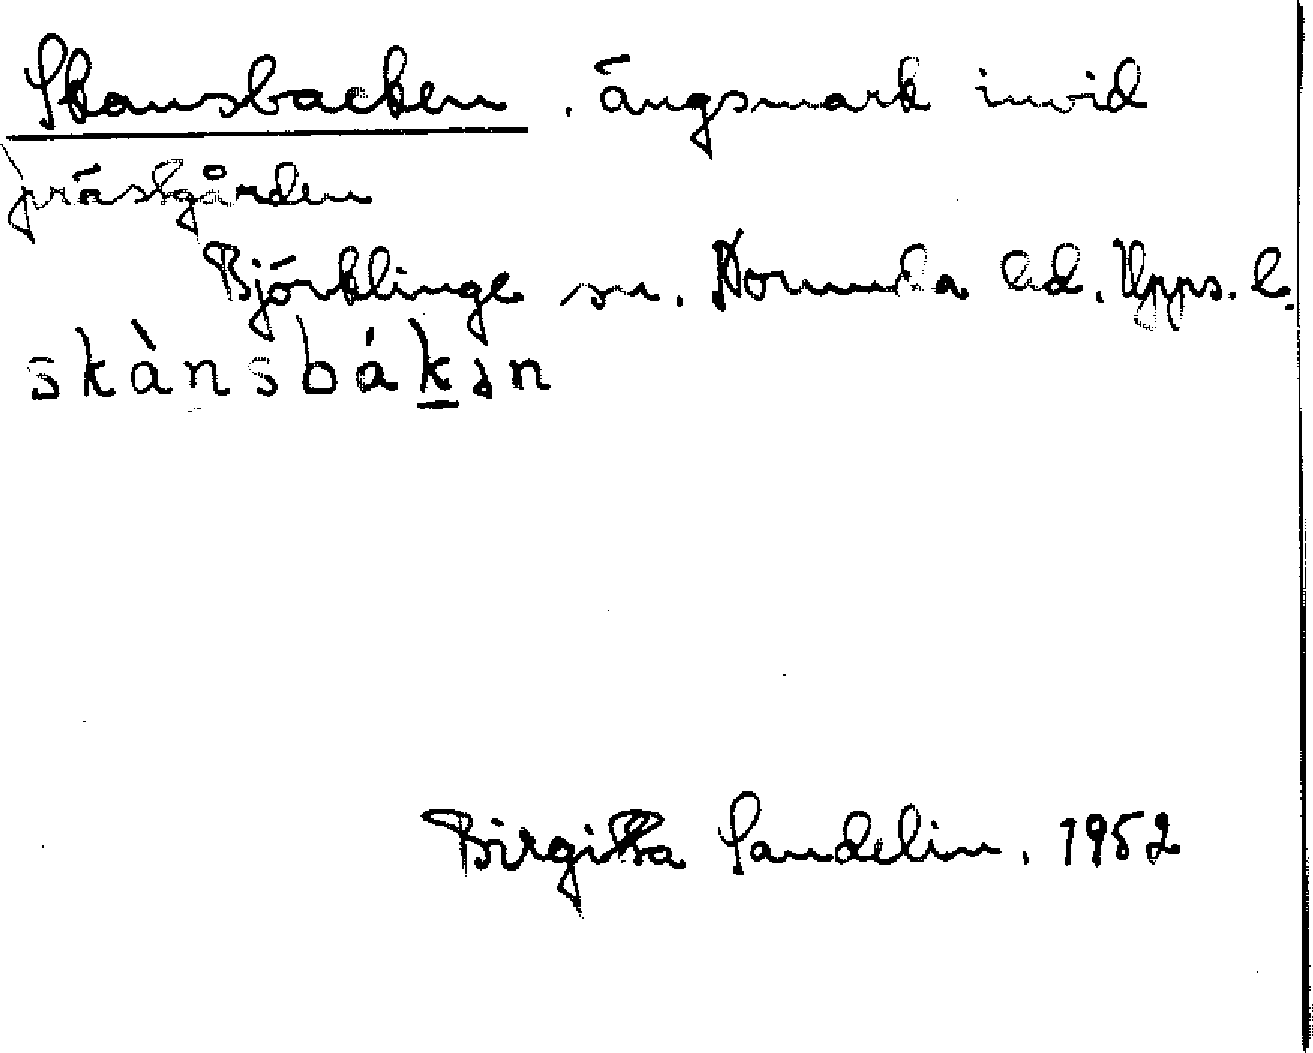 Skansbacken, ängsmark invid
prästgården
Björklinge sn. Norunda hd. Upps. l.
skànsbákən
Birgitta Sandelin. 1952